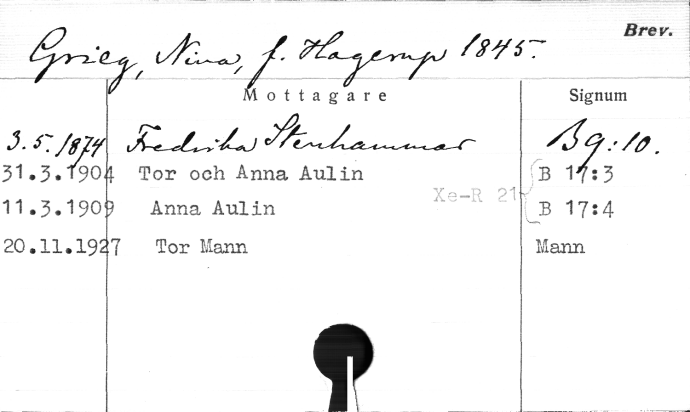 Brev.
Grieg, Nina, f. Hagerup 1845.
Mottagare Signum
3.5.1874 Fredrika Stenhammar B9:10.
31.3.1904 Tor och Anna Aulin B 17:3
Xe-R 21
11.3.1909 Anna Aulin B 17:4
20.11.1927 Tor Mann Mann